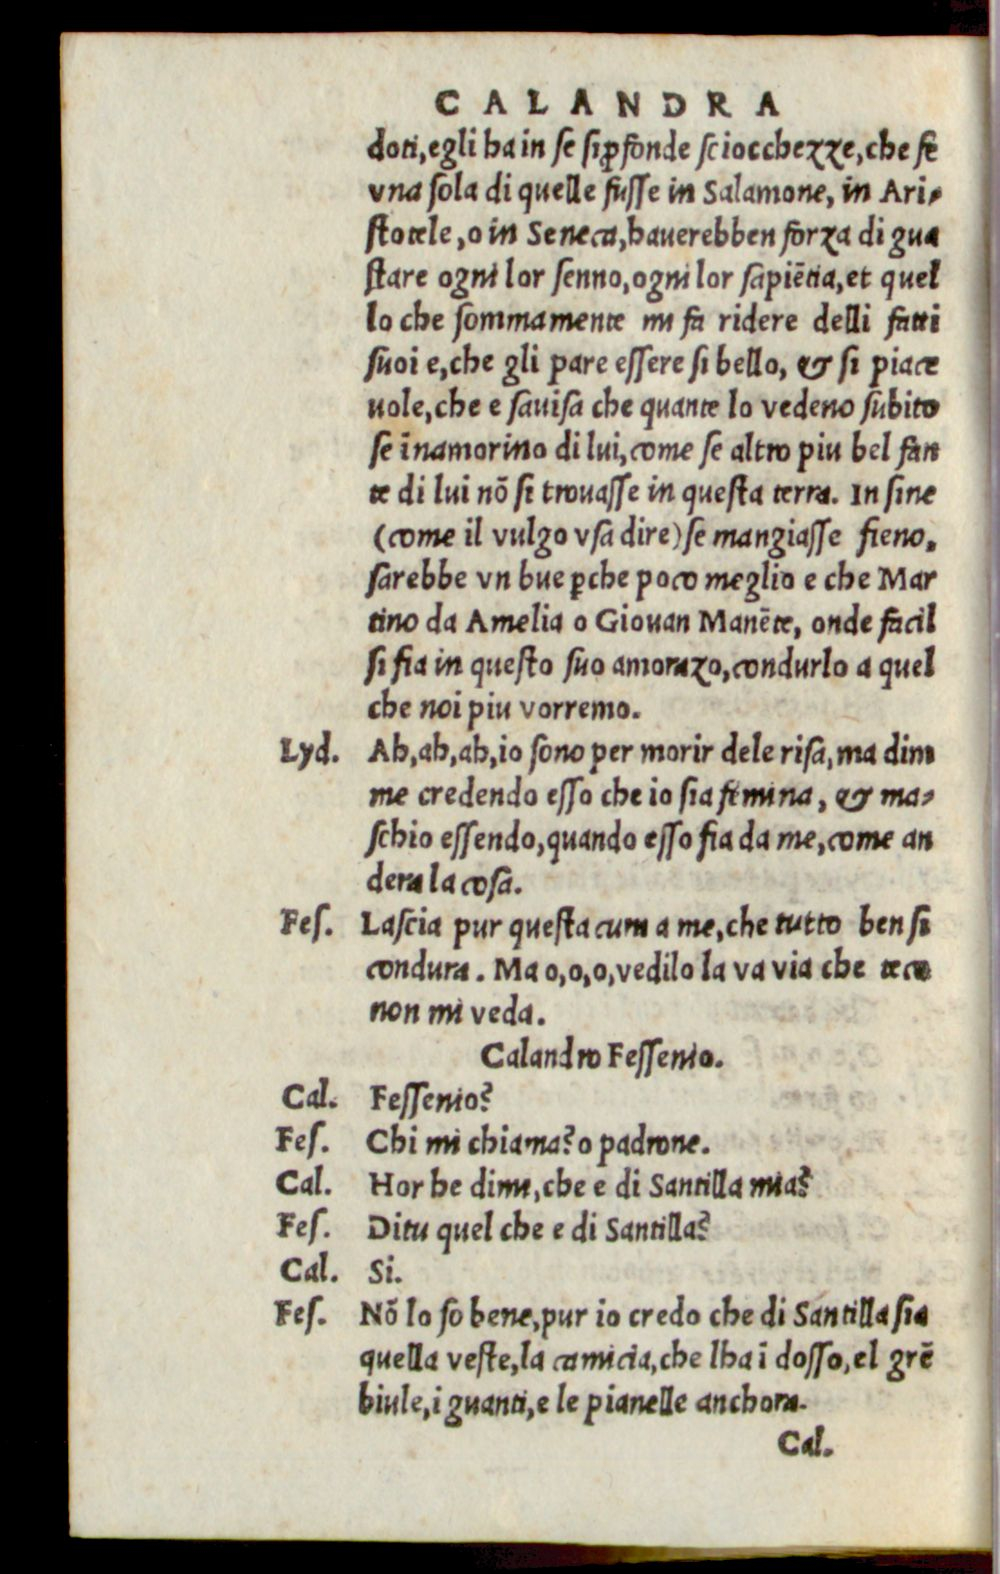 CALANDRA
doti, egli ha in se si ꝓfonde sciocchezze, che se
vna sola di quelle fusse in Salamone, in Ari-
stotele, o in Seneca, hauerebben forza di gua
stare ogni lor senno, ogni lor sapiẽtia, et quel
lo che sommamente mi fa ridere delli fatti
suoi e, che gli pare essere si bello, & si piace
uole, che e sauisa che quante lo vedeno subito
se ĩnamorino di lui, come se altro piu bel fan
te di lui nõ si trouasse in questa terra. In fine
(come il vulgo vsa dire) se mangiasse fieno,
sarebbe vn bue ꝑche poco meglio e che Mar
tino da Amelia o Giouan Manẽte, onde facil
si fia in questo suo amorazo, condurlo a quel
che noi piu vorremo.
Lyd. Ah, ah, ah, io sono per morir dele risa, ma dim
me credendo esso che io sia femina, & ma-
schio essendo, quando esso fia da me, come an
dera la cosa.
Fes. Lascia pur questa cura a me, che tutto ben si
condura. Ma o, o, o, vedilo la va via che teco
non mi veda.
Calandro Fessenio.
Cal. Fessenio?
Fes. Chi mi chiama? o padrone.
Cal. Hor be dimi, che e di Santilla mia?
Fes. Ditu quel che e di Santilla?
Cal. Si.
Fes. Nõ lo so bene, pur io credo che di Santilla sia
quella veste, la camicia, che lha ĩ dosso, el grẽ
biule, i guanti, e le pianelle anchora.
Cal.